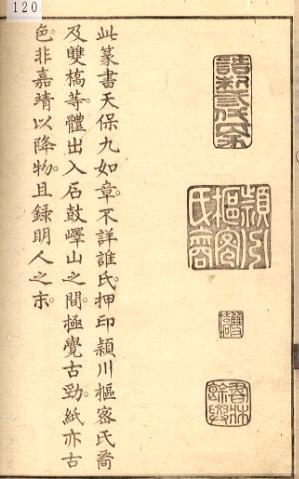 120
潁川樞密氏裔
此篆書天保九如章。不詳誰氏。押印潁川樞密氏裔
及雙槁等。體出入石鼓嶧山之間。極覺古勁。紙亦古
色。非嘉靖以降物。且録明人之末。